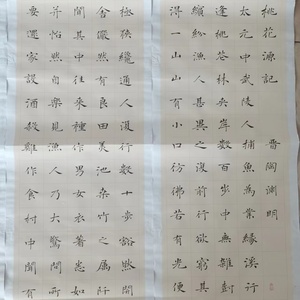 桃花源記 晉陶淵明
太元中武陵人捕魚為業緣溪行
逢桃花林夾岸數百步中無雜
繽紛漁人甚異之復前行欲窮其
得一山山有小口彷彿若有光便
極狹纔通人復行數十步豁然開
舍儼然有良田美池桑竹之屬阡
間其中往來種作男女衣著悉如
并怡然自樂見漁人乃大驚問所
要還家設酒殺雞作食村中聞有